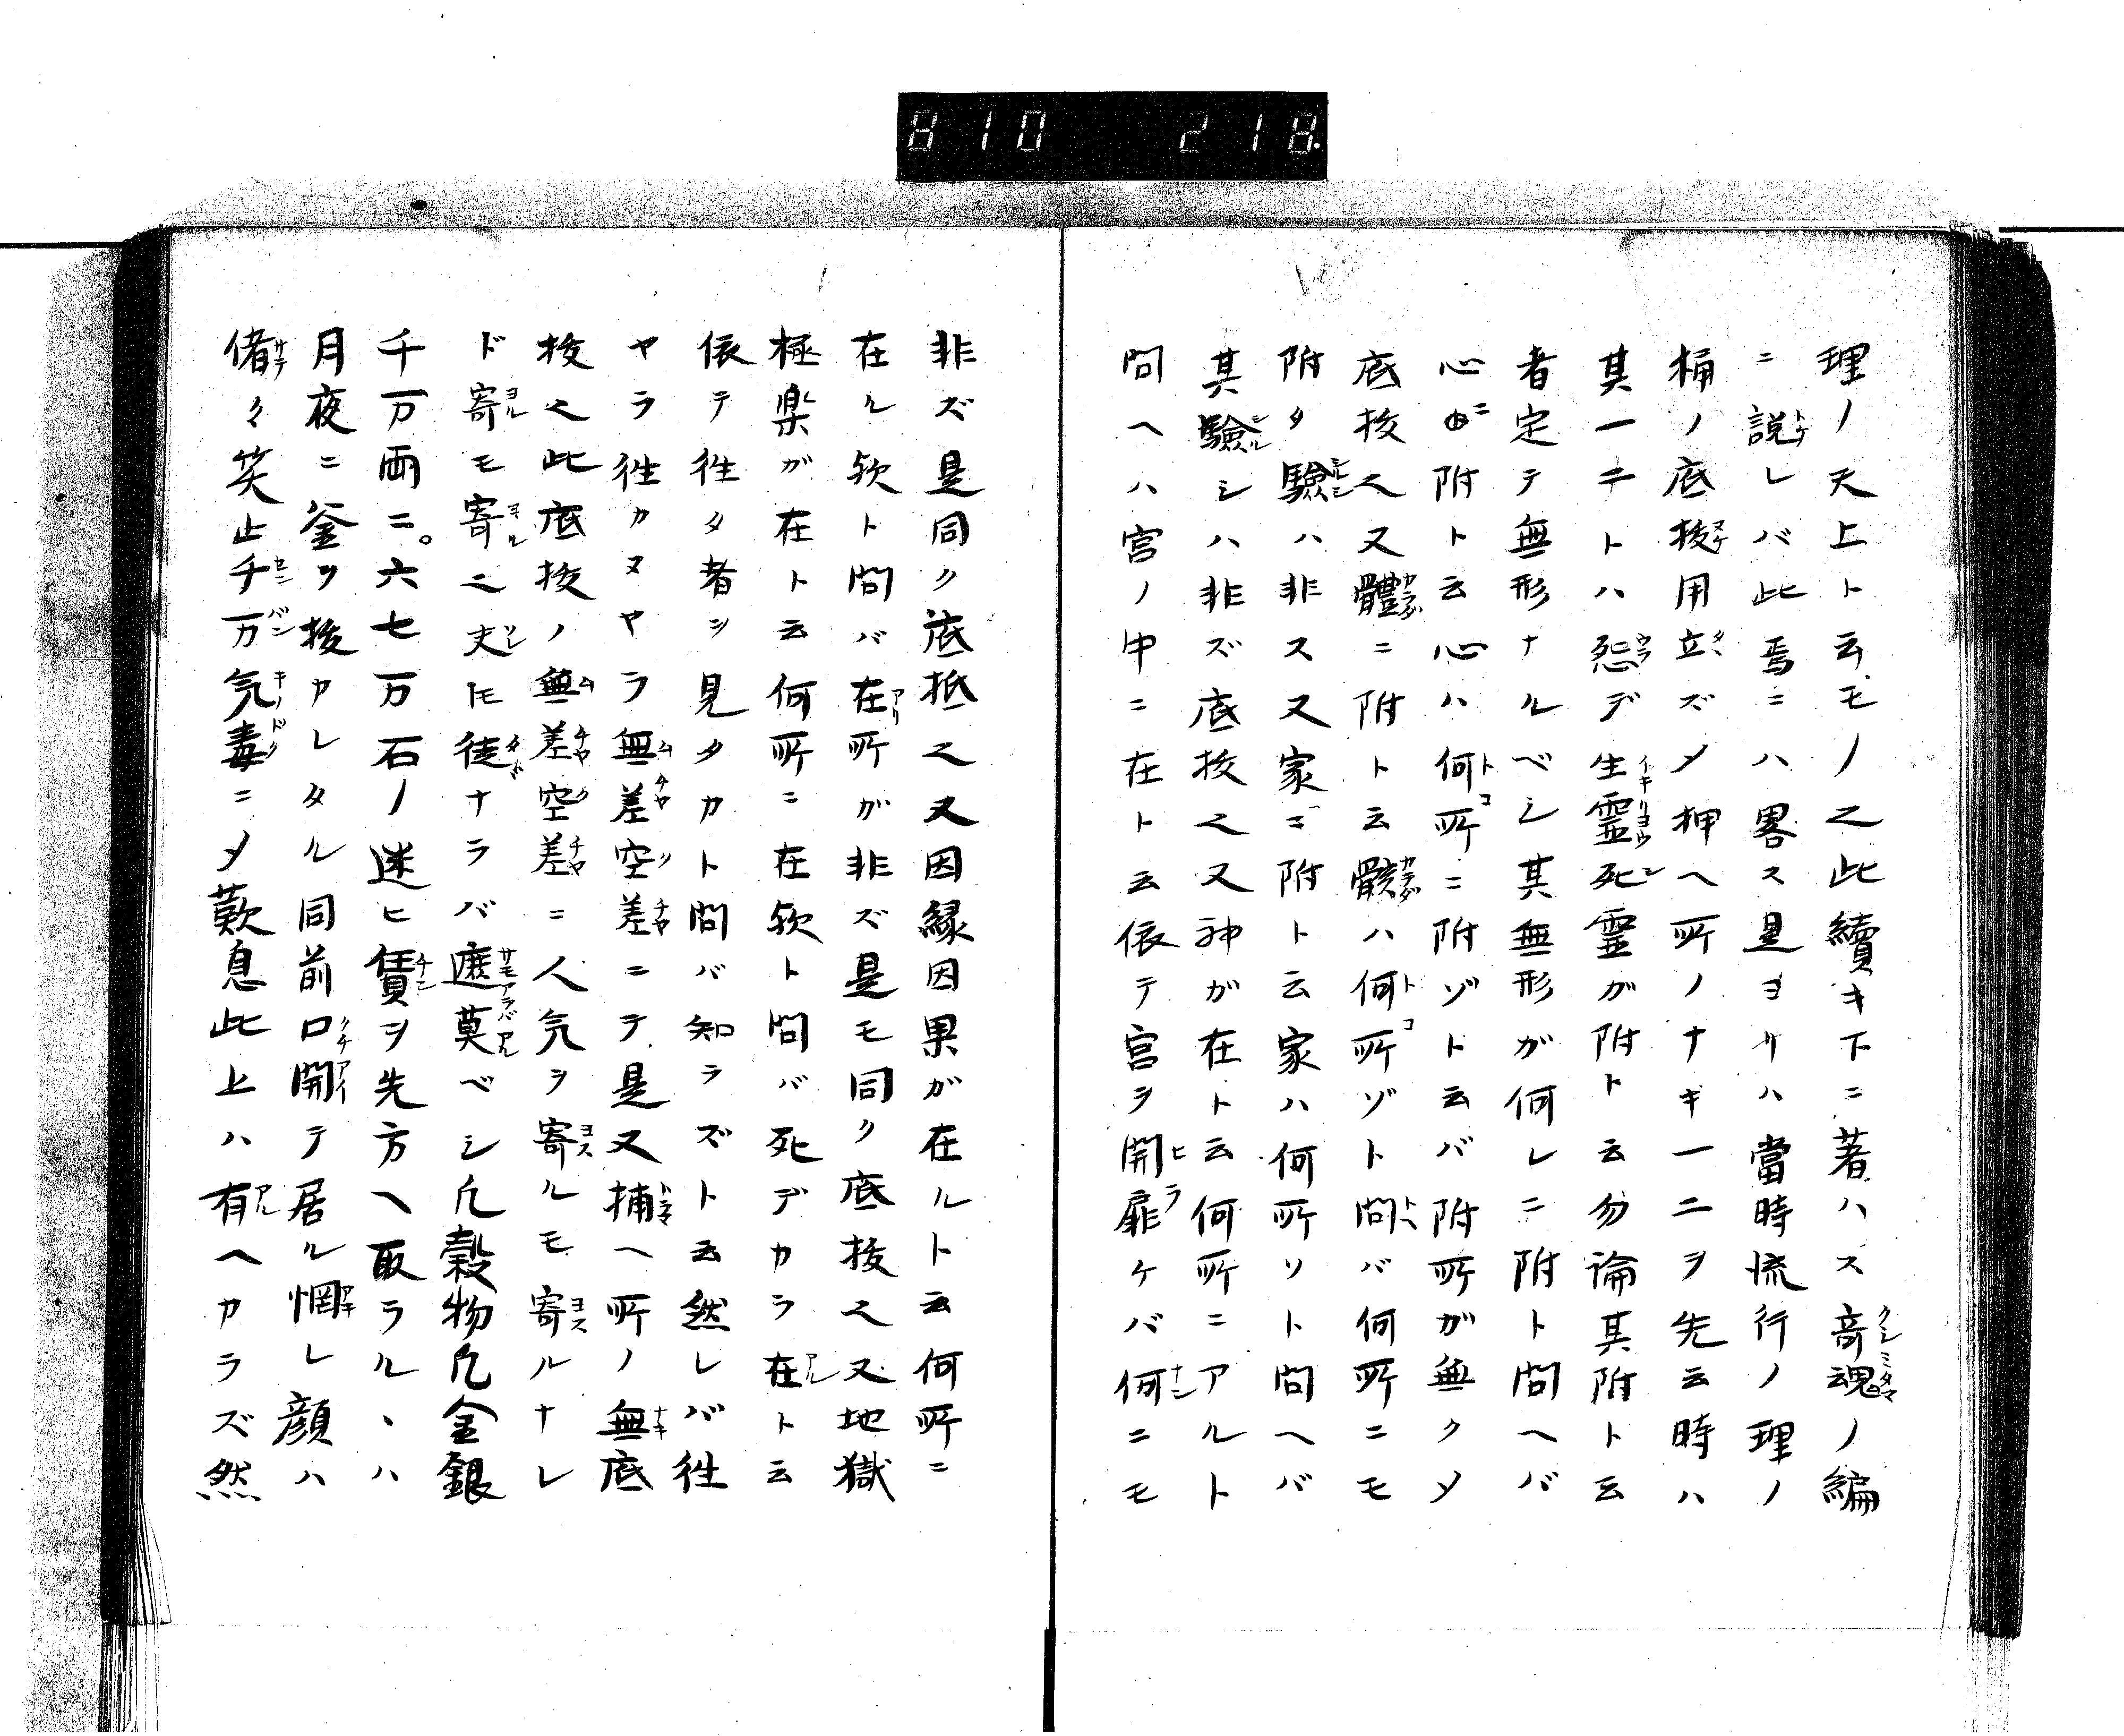 810 218
理ノ天上ト云モノ之此續キ下ニ著ハス竒魂ノ編
ニ説レバ此焉ニハ畧ス是ヨリハ當時流行ノ理ノ
桶ノ底拔用立ズメ押ヘ所ノナキ一二ヲ先云時ハ
其一二トハ怨デ生霊死霊ガ附ト云勿論其附ト云
者定テ無形ナルベシ其無形ガ何レニ附ト問ヘバ
心ニ附ト云心ハ何所ニ附ゾト云バ附所ガ無クメ
底拔之又體ニ附ト云骸ハ何所ゾト問バ何所ニモ
附タ驗ハ非ス又家ニ附ト云家ハ何所ソト問ヘバ
其驗シハ非ズ底拔之又神ガ在ト云何所ニアルト
問ヘハ宮ノ中ニ在ト云依テ宮ヲ開扉ケバ何ニモ
非ズ是同ク底抵之又因縁因果ガ在ルト云何所ニ
在ル欤ト問バ在所ガ非ズ是モ同ク底拔之又地獄
極楽ガ在ト云何所ニ在欤ト問バ死デカラ在ト云
依テ徃タ者シ見タカト問バ知ラズト云然レバ徃
ヤラ徃カヌヤラ無差空差ニテ是又捕ヘ所ノ無底
拔之此底拔ノ無差空差ニ人気ヲ寄ルモ寄ルナレ
ド寄モ寄ル之夫ヒモ徒ナラバ遮莫ベシ凡穀物凡金銀
千万両ニ。六七万石ノ迷ヒ賃ヲ先方ヘ取ラルヽハ
月夜ニ釜ヲ拔カレタル同前口開テ居ル惘レ顔ハ
偖々笑止千万気毒ニメ歎息此上ハ有ヘカラズ然